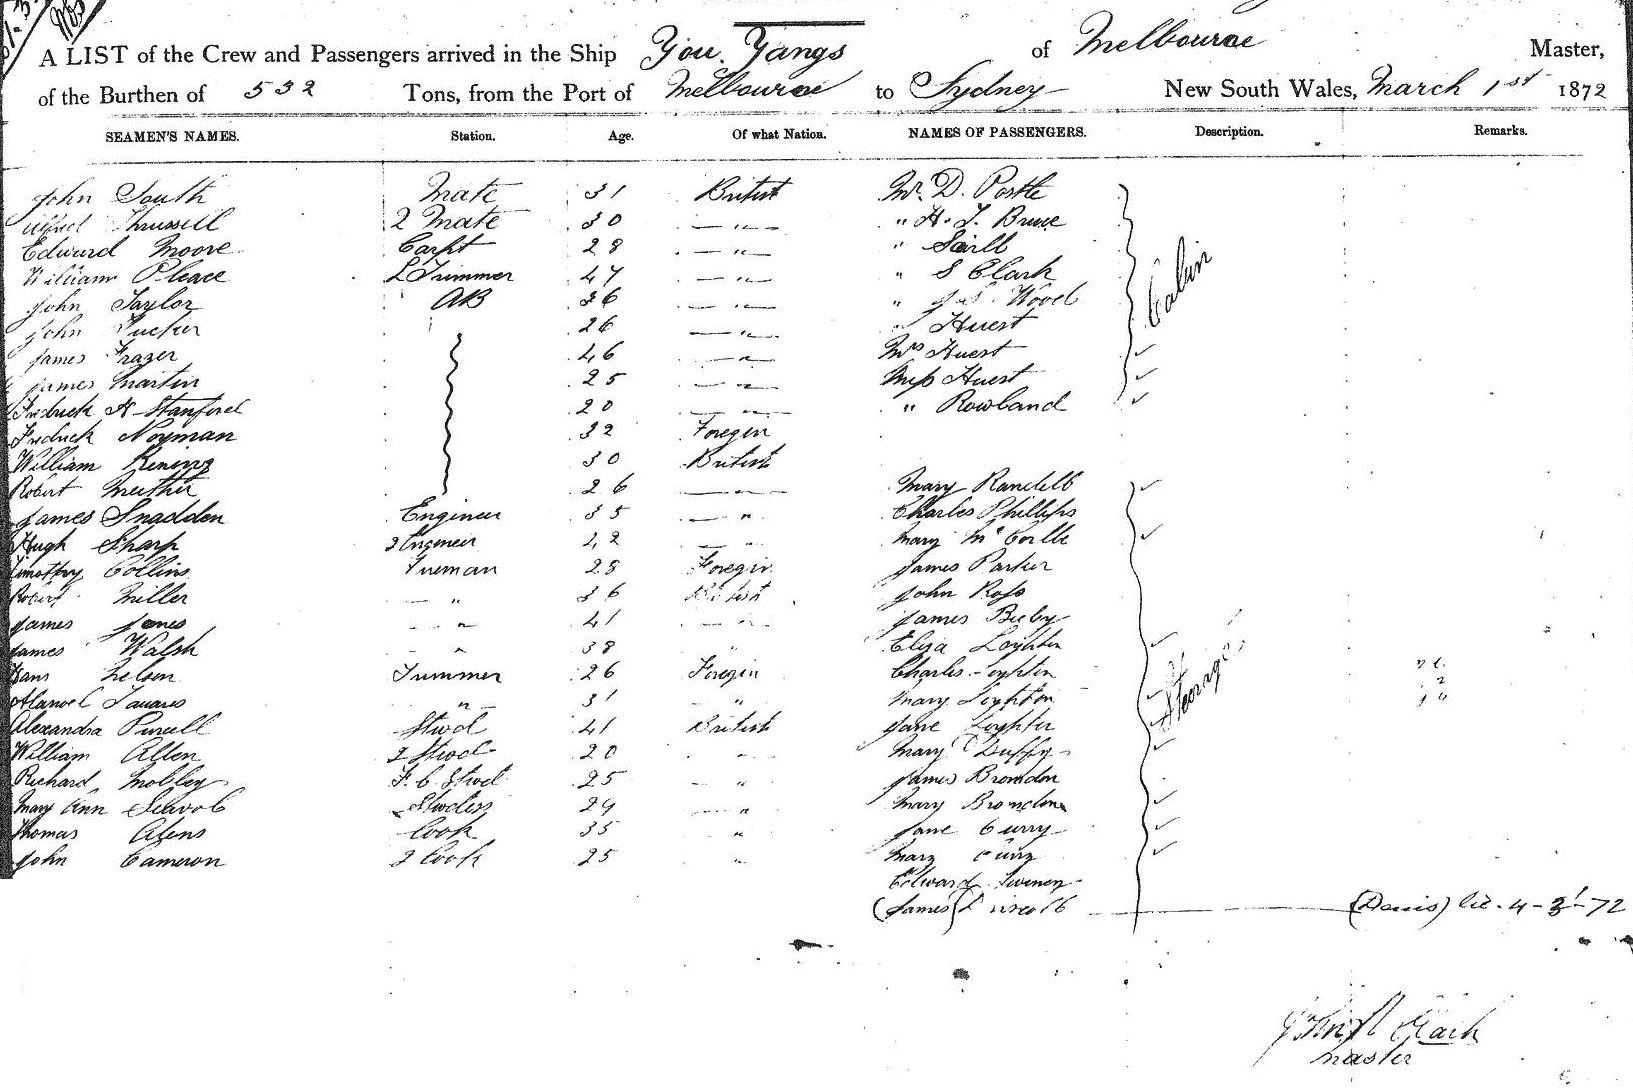 A LIST of the Crew and Passengers arrived in the Ship You Yangs of Melbourne Master,
of the Burthen of 532 Tons, from the Port of Melbourne to Sydney New South Wales, March 1st 1872
SEAMEN'S NAMES. Station. Age. Of what Nation. NAMES OF PASSENGERS. Description. Remarks.
John South Mate 31 British Mr. D. Postle
Alfred Thrussell 2 Mate 30 —〃— 〃 H. J. Bruce
Edward Moore Carpt 28 —〃— 〃
William Pleace L Trimmer 47 —〃— 〃 S Clark
John Taylor AB 36 —〃— 〃 Wood
John Tucker 26 —〃— 〃 Huest
Cabin
James Frazer 46 —〃— Mrs Huest
James Martin 25 —〃— Miss Huest
Fredrick H Stanford 20 —〃— 〃 Rowland
Fredrick Noyman 32 Foregin
William 30 British
Robert 26 —〃— Mary Randell
James Snadden Engineer 35 —〃 Charles Phillips
Hugh Sharp 2 Engineer 42 —〃 Mary
Timothy Collins Fireman 28 Foregin James Parker
Robert Miller —〃 36 British John Ross
James Jones —〃 41 —〃— James
James Walsh —〃 38 〃 Eliza Loyhten
Hans Nelson Trimmer 26 Foregin Charles
Manoel Tauares 〃 31 〃 Mary
Steerage
Alexandra Purcell Stwd 41 British Jane Loyhter
William Allen 2 Stwd 20 〃 Mary Duffy
Richard Mobley F. C Stwd 25 〃 James Bromdon
Mary Ann Stwdess 29 〃 Mary
Thomas Cook 35 〃 Jane Curry
John Cameron 2 Cook 25 〃 Mary Curry
Edward
(James) (Denis) 4-3-72
Clark
Master